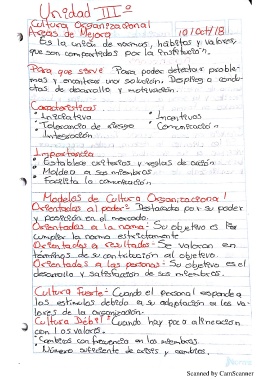 Unidad III°
Cultura Organizacional
Areas de Mejora 10/Oct/18
Es la unión de normas, hábitos y valores,
que son compartidos por la institución.
Para que sirve Para poder detectar proble-
mas y encontrar una solución. Despliega condu-
ctas de desarrollo y motivación.
Características
• Iniciativa • Incentivos
• Tolerancia de riesgo • Comunicación
• Integración
Importancia
• Establece criterios y reglas de acción
• Moldea a sus miembros.
• Facilita la comunicación
Modelos de Cultura Organizacional
Orientadas al poder: Destacada por su poder
y posición en el mercado.
Orientadas a la norma- Su objetivo es
cumplir la norma estrictamente
Orientadas a resultados- Se valoran en
términos de su contribución al objetivo.
Orientadas a las personas- Su objetivo es el
desarrollo y satisfacción de sus miembros.
Cultura Fuerte- Cuando el personal responde a
los estímulos debido a su adaptación a los va-
lores de la organización.
Cultura Débil- Cuando hay poca alineación
con los valores.
• Cambios con frecuencia en los miembros.
• Número suficiente de crisis y cambios.
Scanned by CamScanner